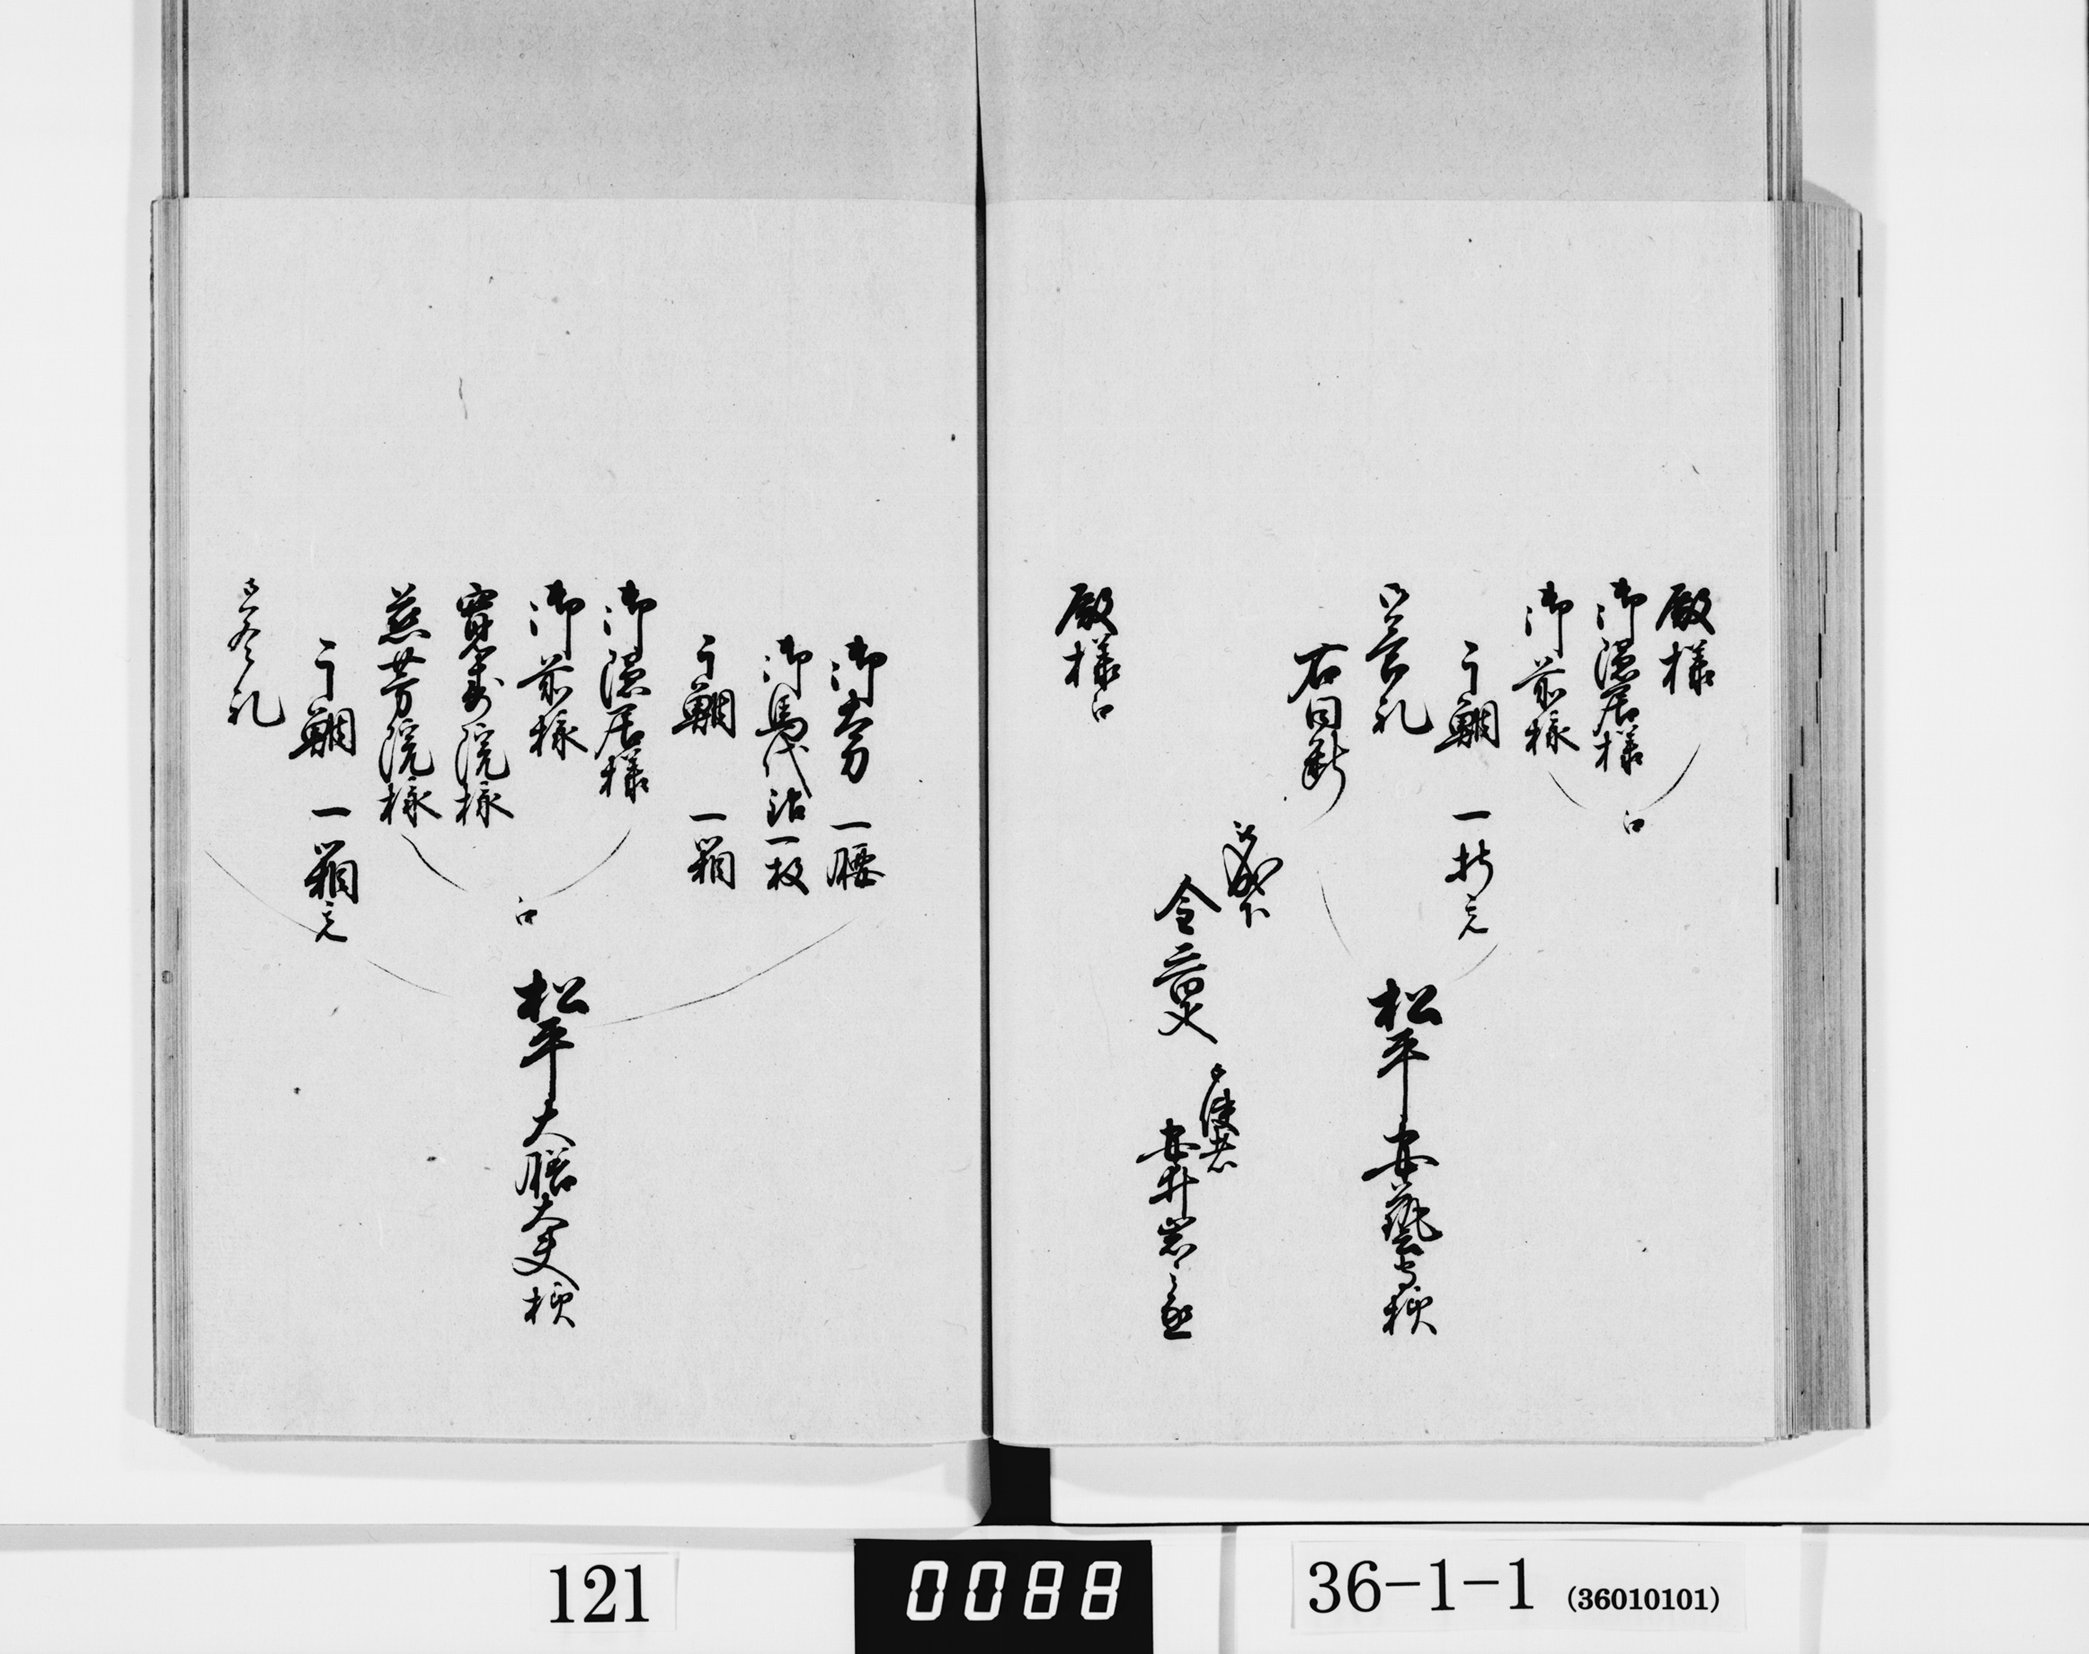 殿様
御隠居様
御前様
江
干鯛　一折宛
松平安藝守様
御答礼
右同断
被成下
金三百疋
御使者
安井岩之丞
殿様江
御太刀　一腰
御馬代銀一枚
干鯛　一箱
御隠居様
御前様
寛寿院様
慈芳院様
江
松平大膳大夫様
干鯛　一箱宛
御答礼
121
0088
36-1-1 (36010101)